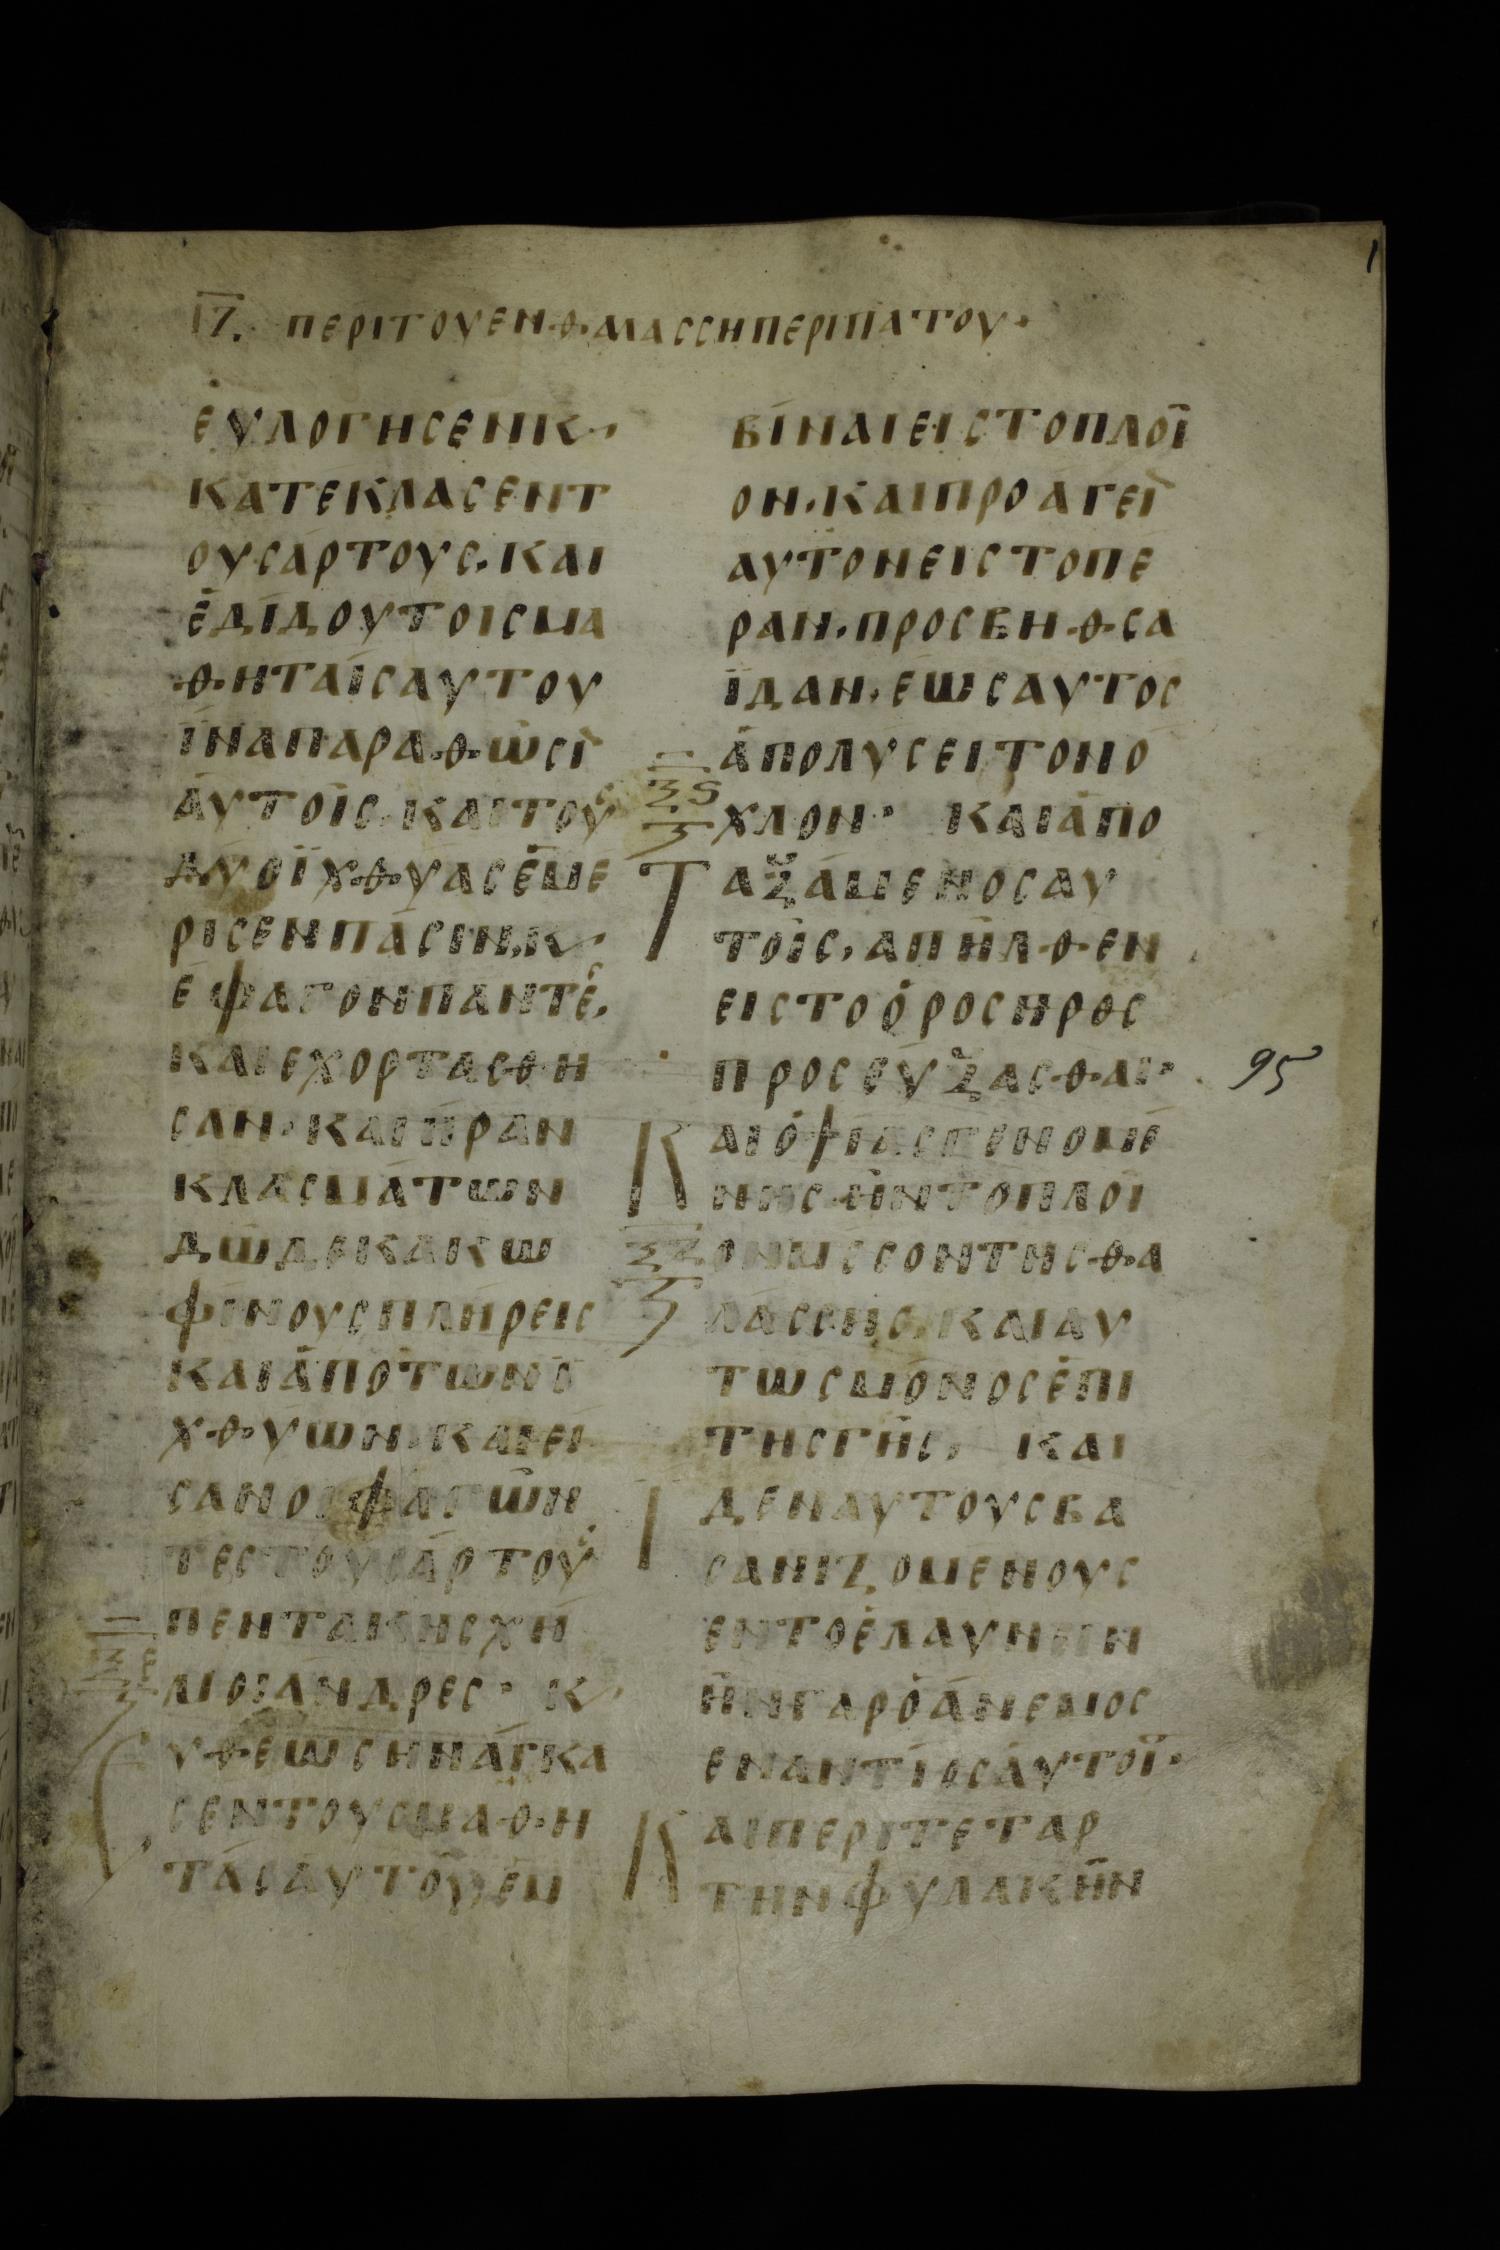 ΙΖ. ΠΕΡΙΤΟΥΕΝΘΑΛΑΣΣΗΠΕΡΙΠΑΤΟΥ·
ΕΥΛΟΓΗϹΕΝΚ
ΚΑΤΕΚΛΑϹΕΝΤ
ΟΥϹΑΡΤΟΥϹ. ΚΑΙ
ΕΔΙΔΟΥΤΟΙϹΜΑ
ΘΗΤΑΙϹΑΥΤΟΥ
ΪΝΑΠΑΡΑΘΩϹΙ
ΑΥΤΟΙϹ. ΚΑΙΤΟΥϹ
ΔΥΟΪΧΘΥΑϹΕΜΕ
ΡΙϹΕΝΠΑϹΙΝ. Κ
ΕΦΑΓΟΝΠΑΝΤΕϹ.
ΚΑΙΕΧΟΡΤΑϹΘΗ
ϹΑΝ· ΚΑΙΗΡΑΝ
ΚΛΑϹΜΑΤΩΝ
ΔΩΔΕΚΑΚΩ
ΦΙΝΟΥϹΠΛΗΡΕΙϹ
ΚΑΙΑΠΟΤΩΝΙ
ΧΘΥΩΝ. ΚΑΙΕΙ
ϹΑΝΟΙΦΑΓΩΝ
ΤΕϹΤΟΥϹΑΡΤΟΥϹ
ΠΕΝΤΑΚΗϹΧΗ
ΛΙΟΙΑΝΔΡΕϹ· Κ
ΞΕ
Ε
ΥΘΕΩϹΗΝΑΓΚΑ
ϹΕΝΤΟΥϹΜΑΘΗ
ΤΑϹΑΥΤΟΥ, ΕΜ
ΒΙΝΑΙΕΙϹΤΟΠΛΟΙ
ΟΝ. ΚΑΙΠΡΟΑΓΕΙ
ΑΥΤΟΝΕΙϹΤΟΠΕ
ΡΑΝ. ΠΡΟϹΒΗΘϹΑ
ΪΔΑΝ. ΕΩϹΑΥΤΟϹ
ΑΠΟΛΥϹΕΙΤΟΝΟ
ΞϚ
ΧΛΟΝ· ΚΑΙΑΠΟ
Τ ΑΞΑΜΕΝΟϹΑΥ
ΤΟΙϹ, ΑΠΗΛΘΕΝ
ΕΙϹΤΟΟΡΟϹΗΡΟϹ
ΠΡΟϹΕΥΞΑϹΘΑΙ· 95
Κ ΑΙΟΨΙΑϹΓΕΝΟΜΕ
ΝΗϹ. ΗΝΤΟΠΛΟΙ
ΞΖ
ΟΝΜϹϹΟΝΤΗϹΘΑ
ΛΑϹϹΗϹ. ΚΑΙΑΥ
ΤΩϹΜΟΝΟϹΕΠΙ
ΤΗϹΓΗϹ, ΚΑΙ
Ι ΔΕΝΑΥΤΟΥϹΒΑ
ϹΑΝΙΖΟΜΕΝΟΥϹ
ΕΝΤΟΕΛΑΥΝΕΙΝ
ΗΝΓΑΡΟΑΝΕΜΟϹ
ΕΝΑΝΤΙΟϹΑΥΤΟΪ·
Κ ΑΙΠΕΡΙΤΕΤΑΡ
ΤΗΝΦΥΛΑΚΗΝ